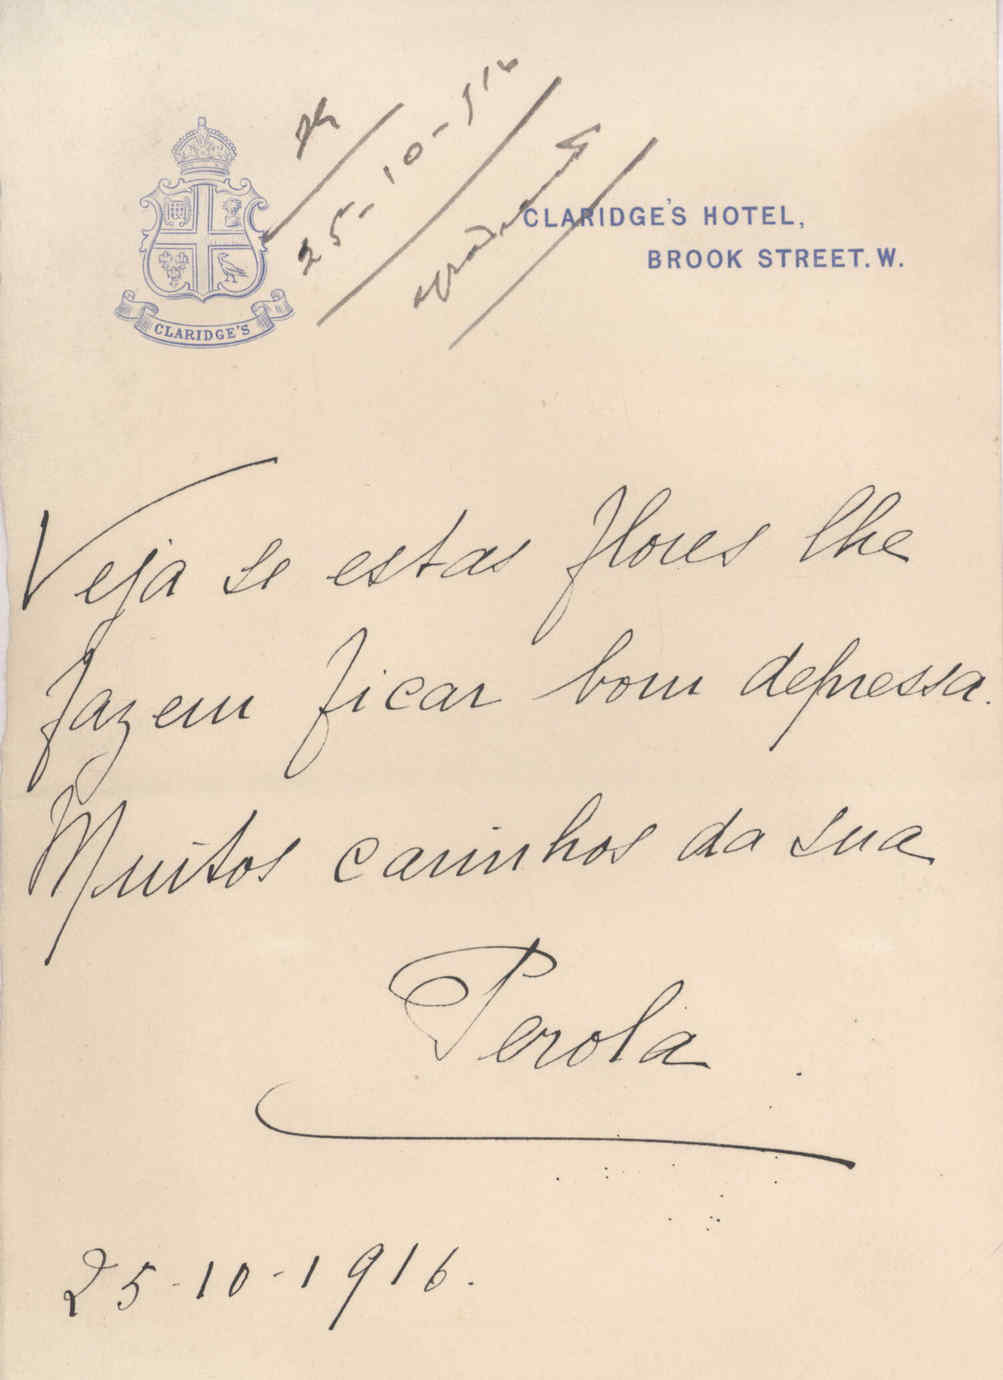 25-10-916
CLARIDGE'S HOTEL,
BROOK STREET. W.
CLARIDGE'S
Veja se estas flores lhe
fazem ficar bom depressa.
Muitos carinhos da sua
Perola
25-10-1916.